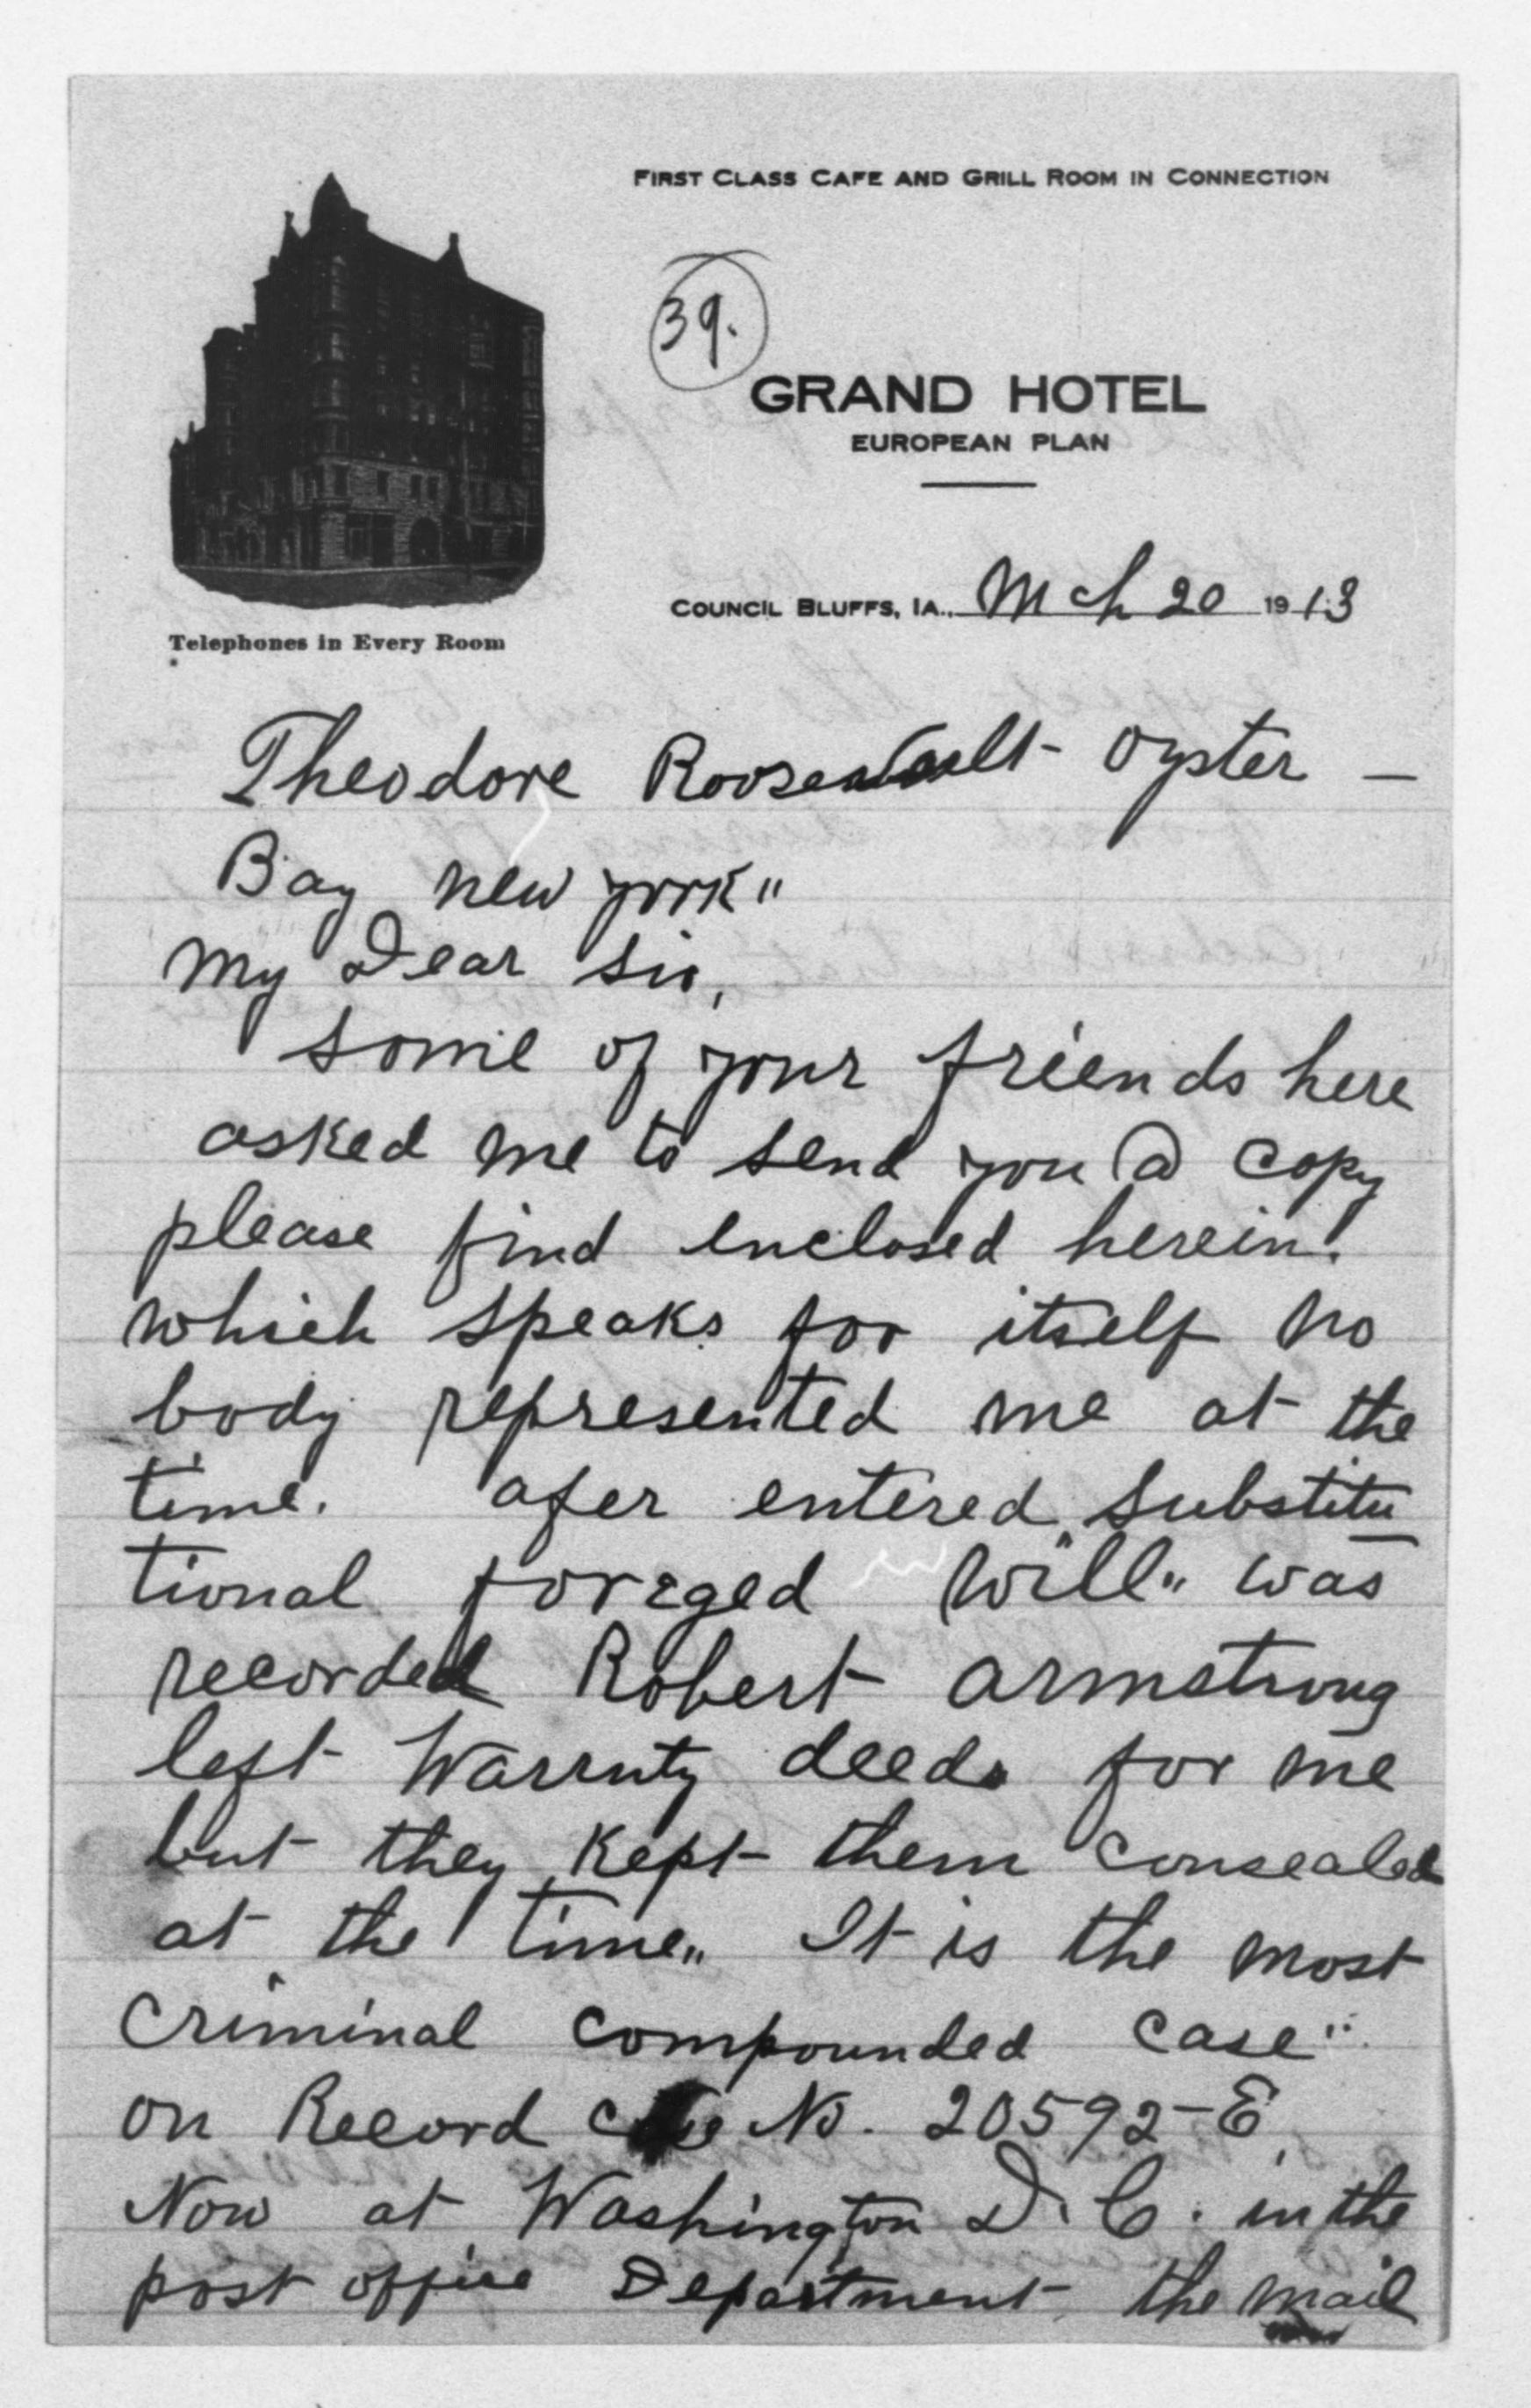 FIRST CLASS CAFE AND GRILL ROOM IN CONNECTION
39.
GRAND HOTEL
EUROPEAN PLAN
COUNCIL BLUFFS, IA., Mch 20 1913
Telephones in Every Room
Theodore Roosevelt Oyster —
Bay new york"
My Dear Sir,
Some of your friends here
asked me to send you a copy
please find enclosed herein.
which speaks for itself no
body represented me at the
time. afer entered, substitu
tional foreged "Will" was
recorded Robert armstrong
left Warrnty deeds for me
but they kept them consealed
at the time" It is the most
Criminal compounded case"
on Record case No. 20592-E,
Now at Washington D. C. in the
post office Department the mail